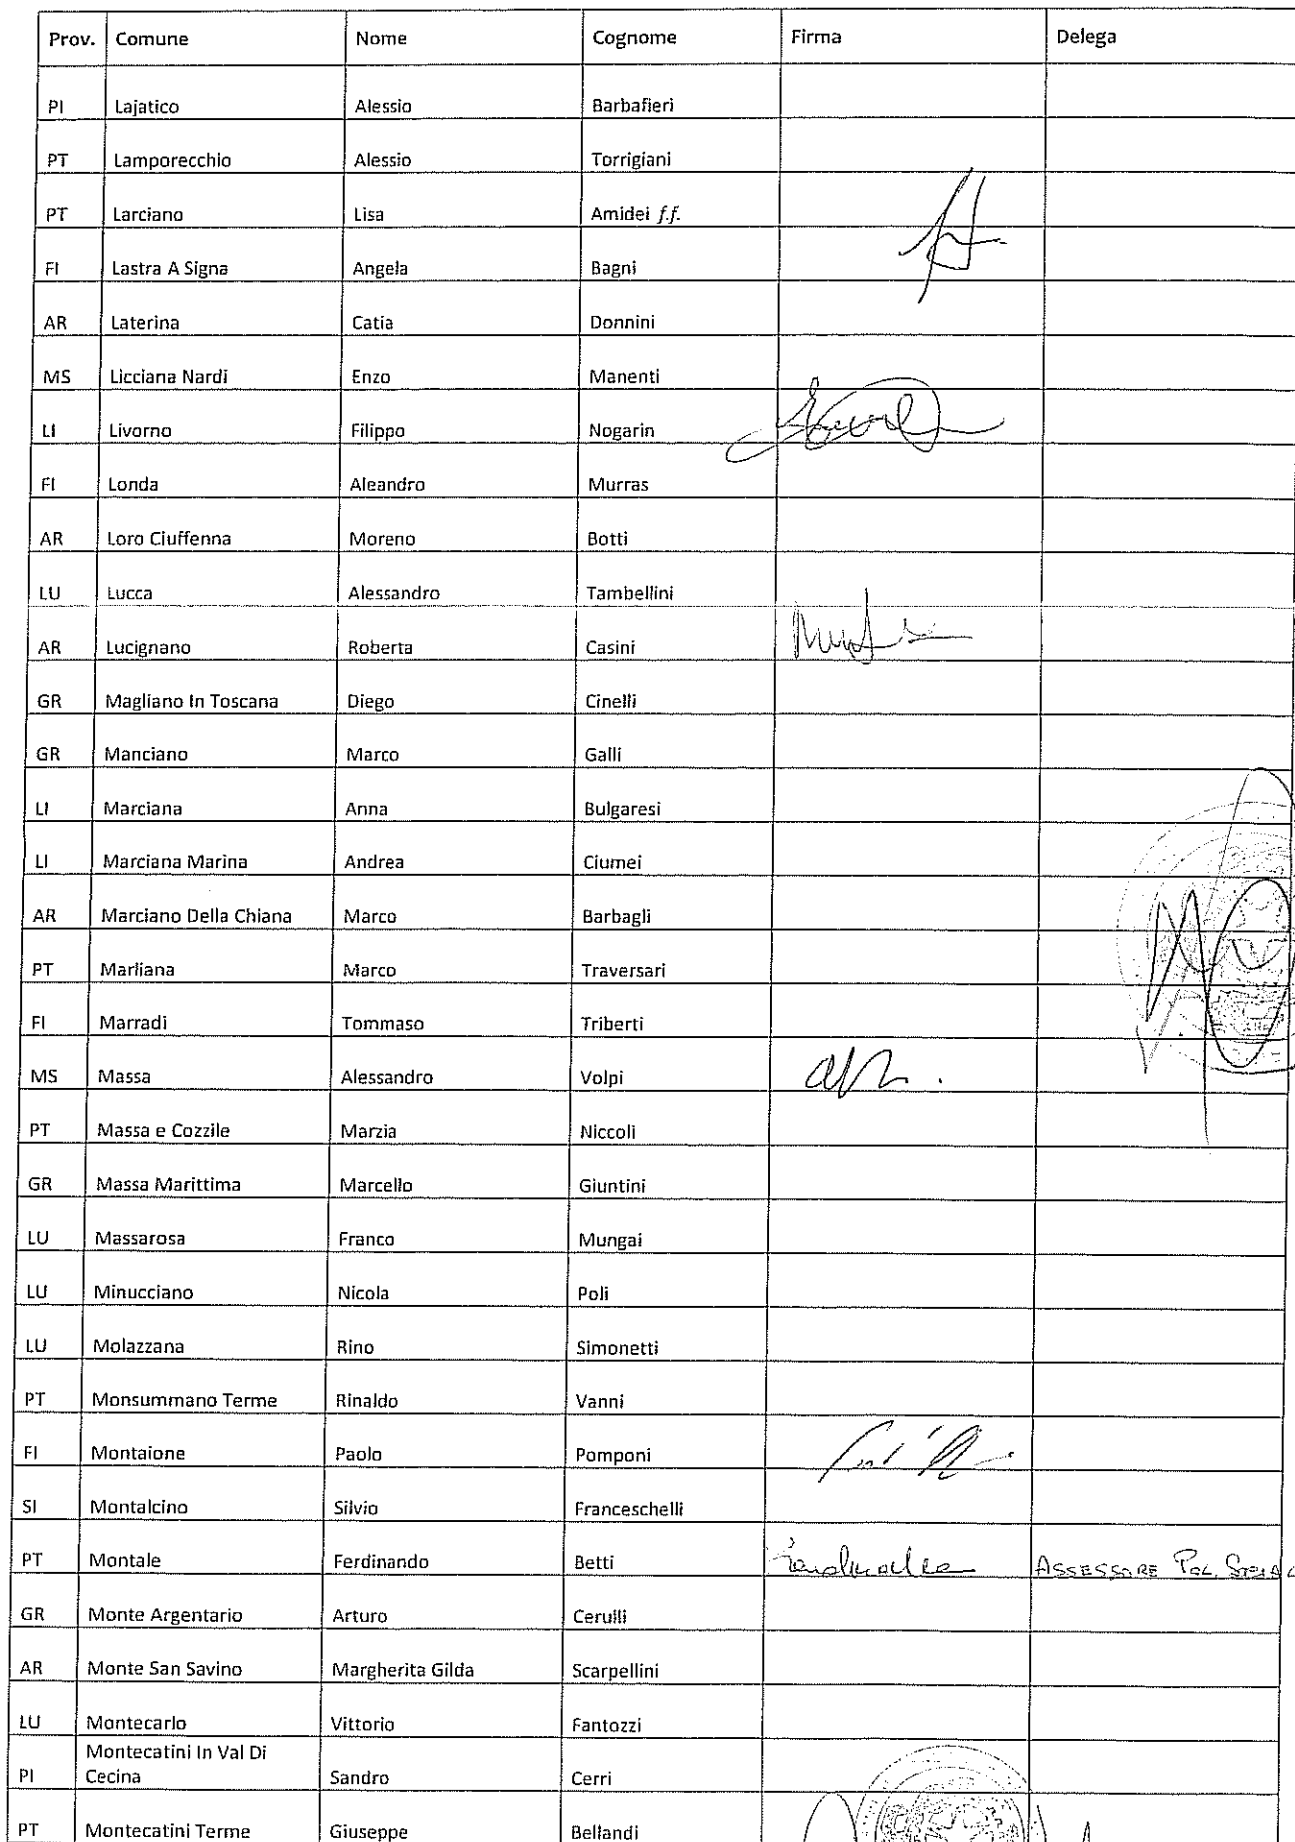 Prov. Comune Nome Cognome Firma Delega
PI Lajatico Alessio Barbafieri
PT Lamporecchio Alessio Torrigiani
PT Larciano Lisa Amidei f.f.
FI Lastra A Signa Angela Bagni
AR Laterina Catia Donnini
MS Licciana Nardi Enzo Manenti
LI Livorno Filippo Nogarin
FI Londa Aleandro Murras
AR Loro Ciuffenna Moreno Botti
LU Lucca Alessandro Tambellini
AR Lucignano Roberta Casini
GR Magliano In Toscana Diego Cinelli
GR Manciano Marco Galli
LI Marciana Anna Bulgaresi
LI Marciana Marina Andrea Ciumei
AR Marciano Della Chiana Marco Barbagli
PT Marliana Marco Traversari
FI Marradi Tommaso Triberti
MS Massa Alessandro Volpi
PT Massa e Cozzile Marzia Niccoli
GR Massa Marittima Marcello Giuntini
LU Massarosa Franco Mungai
LU Minucciano Nicola Poli
LU Molazzana Rino Simonetti
PT Monsummano Terme Rinaldo Vanni
FI Montaione Paolo Pomponi
SI Montalcino Silvio Franceschelli
PT Montale Ferdinando Betti ASSESSORE POL.
GR Monte Argentario Arturo Cerulli
AR Monte San Savino Margherita Gilda Scarpellini
LU Montecarlo Vittorio Fantozzi
Montecatini In Val Di
PI Cecina Sandro Cerri
PT Montecatini Terme Giuseppe Bellandi